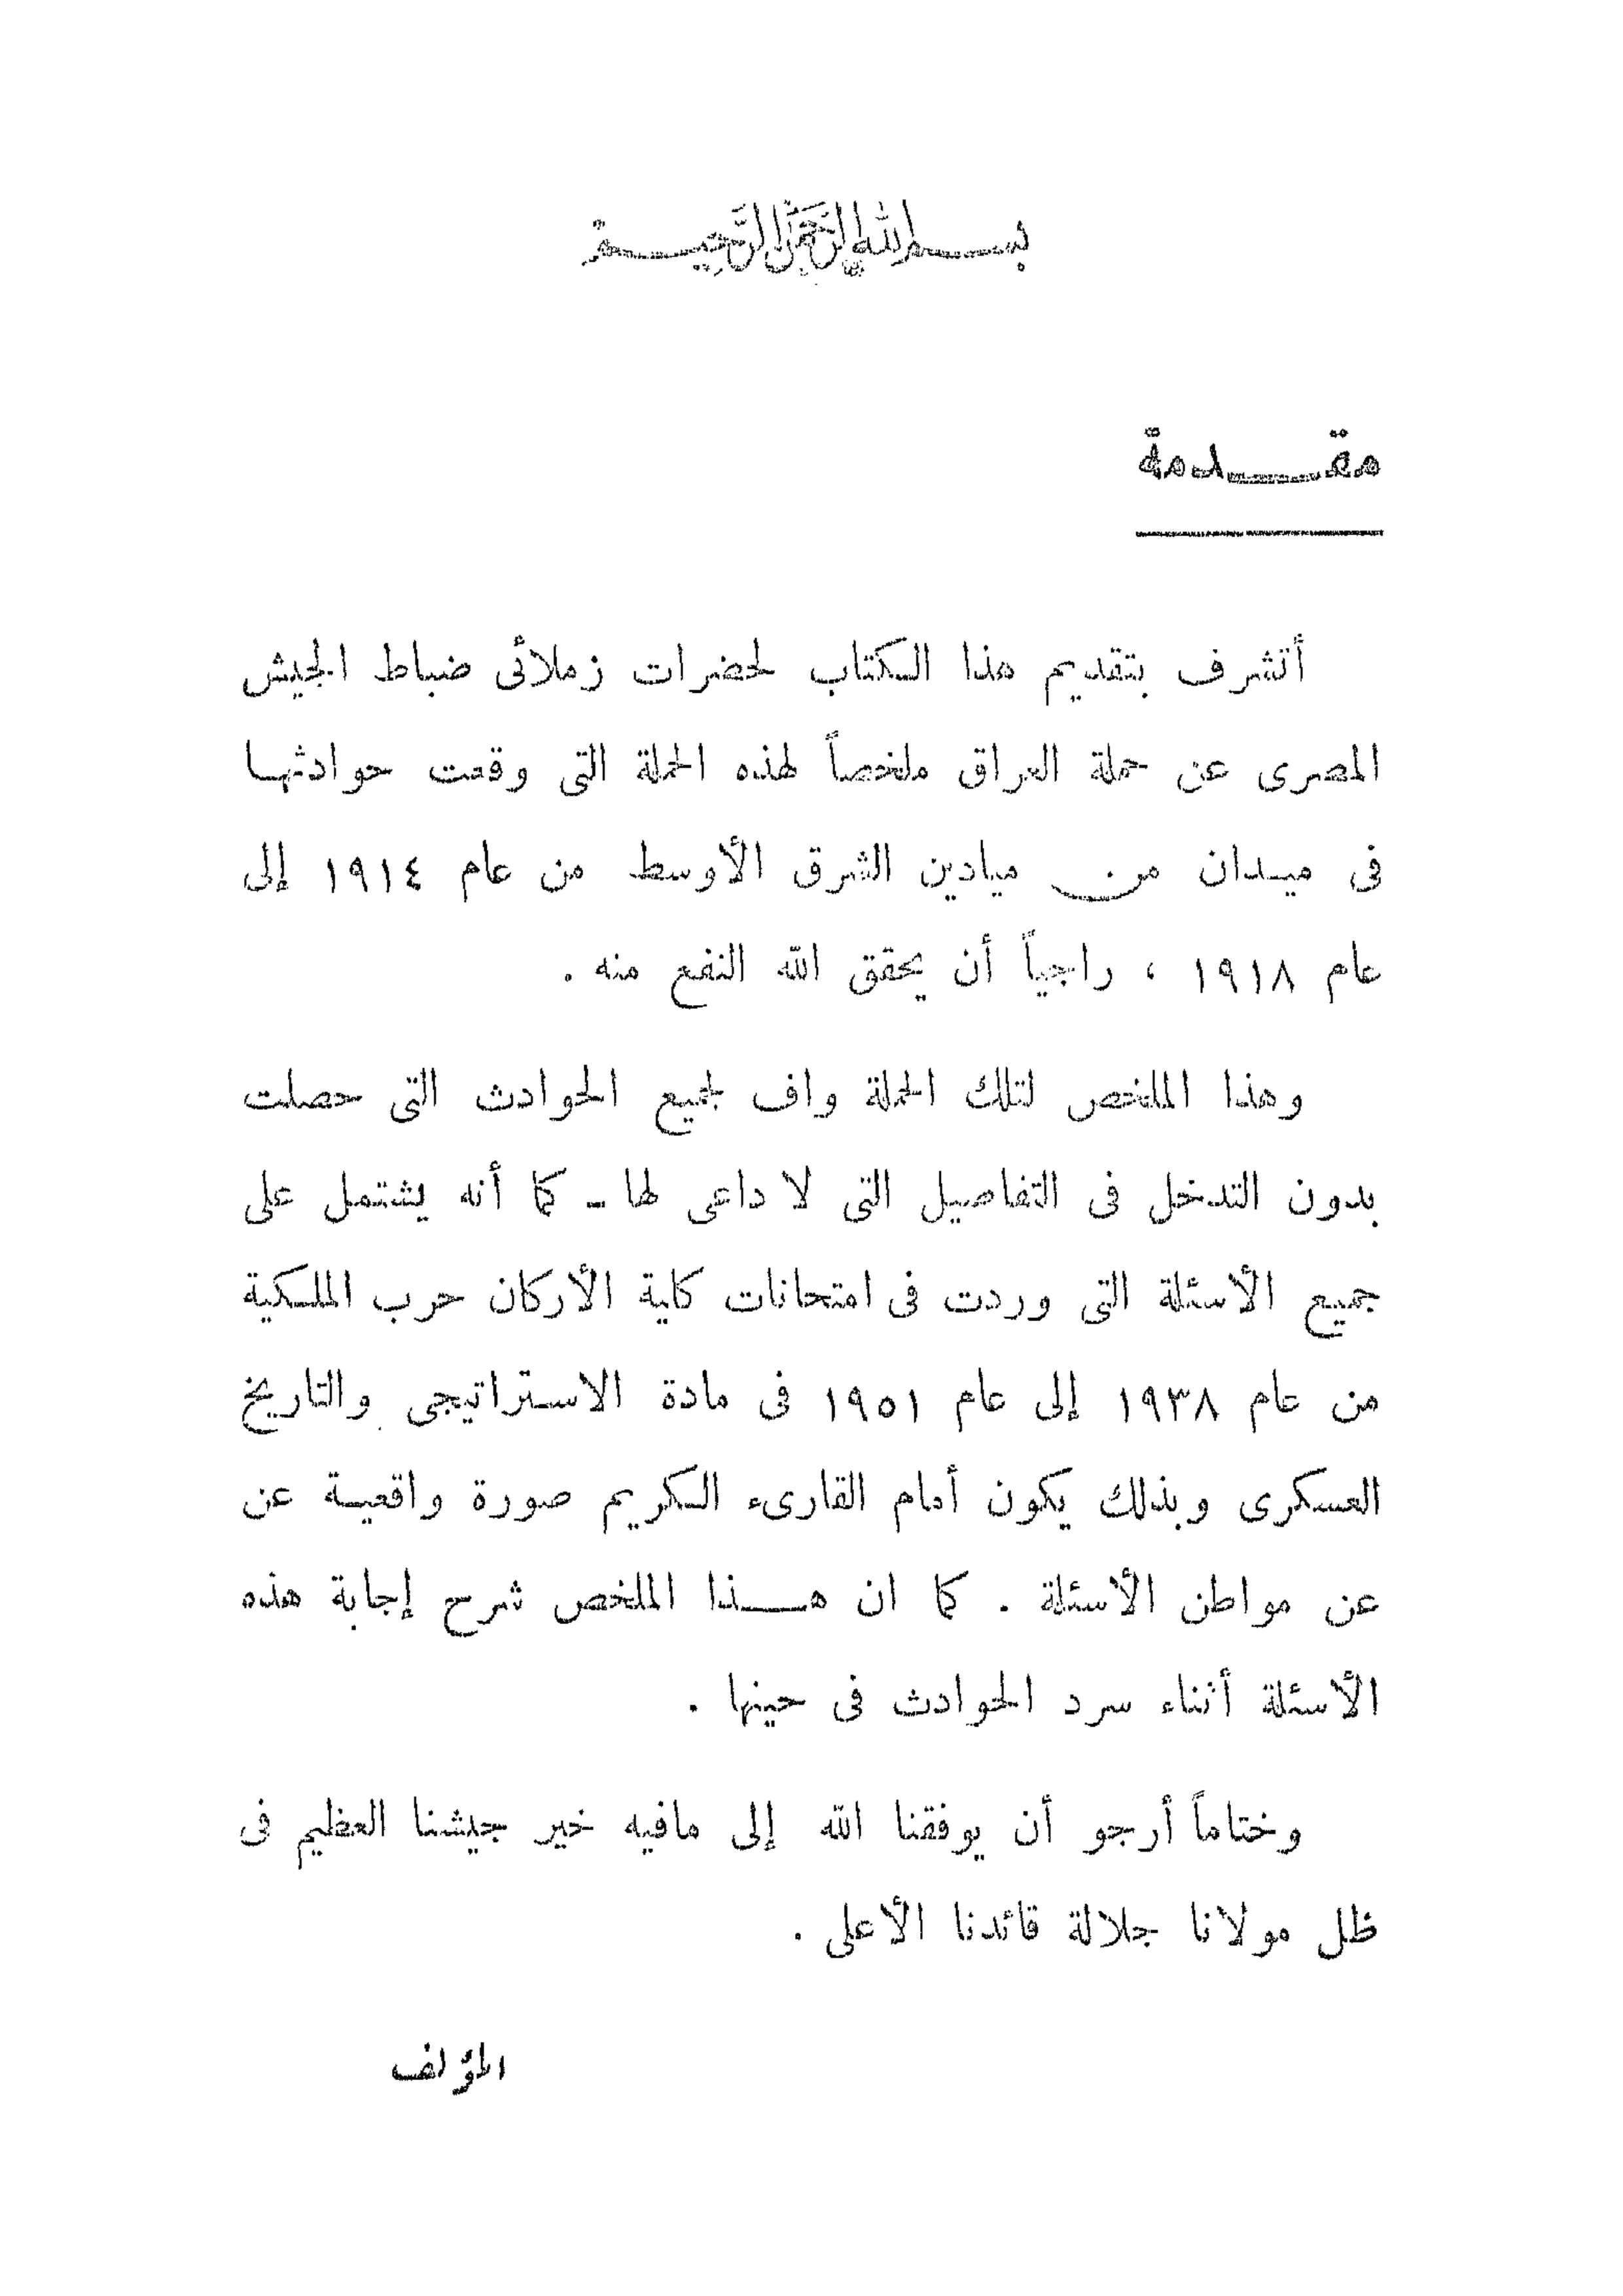 بسم الله الرحمن الرحيم
مقدمة
أتشرف بتقديم هذا الكتاب لحضرات زملائى ضباط الجيش
المصرى عن حملة العراق ملخصاً لهذه الحملة التى وقعت حوادثها
فى ميدان من ميادين الشرق الأوسط من عام ١٩١٤ إلى
عام ١٩١٨ ، راجياً أن يحقق الله النفع منه .
وهذا الملخص لتلك الحملة واف لجميع الحوادث التى حصلت
بدون التدخل فى التفاصيل التى لا داعى لها - كما أنه يشتمل على
جميع الأسئلة التى وردت فى امتحانات كلية الأركان حرب الملكية
من عام ١٩٣٨ إلى عام ١٩٥١ فى مادة الاستراتيجى والتاريخ
العسكرى وبذلك يكون أمام القارىء الكريم صورة واقعية عن
عن مواطن الأسئلة . كما ان هذا الملخص شرح إجابة هذه
الأسئلة أثناء سرد الحوادث فى حينها .
وختاماً أرجو أن يوفقنا الله إلى مافيه خير جيشنا العظيم فى
ظل مولانا جلالة قائدنا الأعلى .
المؤلف